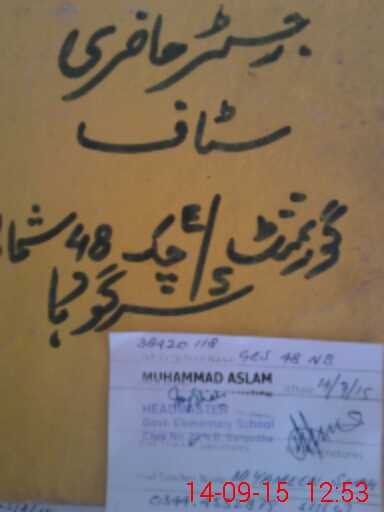 رجسٹر حاضری
سٹاف
گورنمنٹ E/S چک 48 شما
سرگودہا
38420118
GES 48 NB
MUHAMMAD ASLAM
Date 14/9/15
HEADMASTER
Govt. Elementary School
Chak No. 48 N.B. Sargodha
14-09-15 12:53